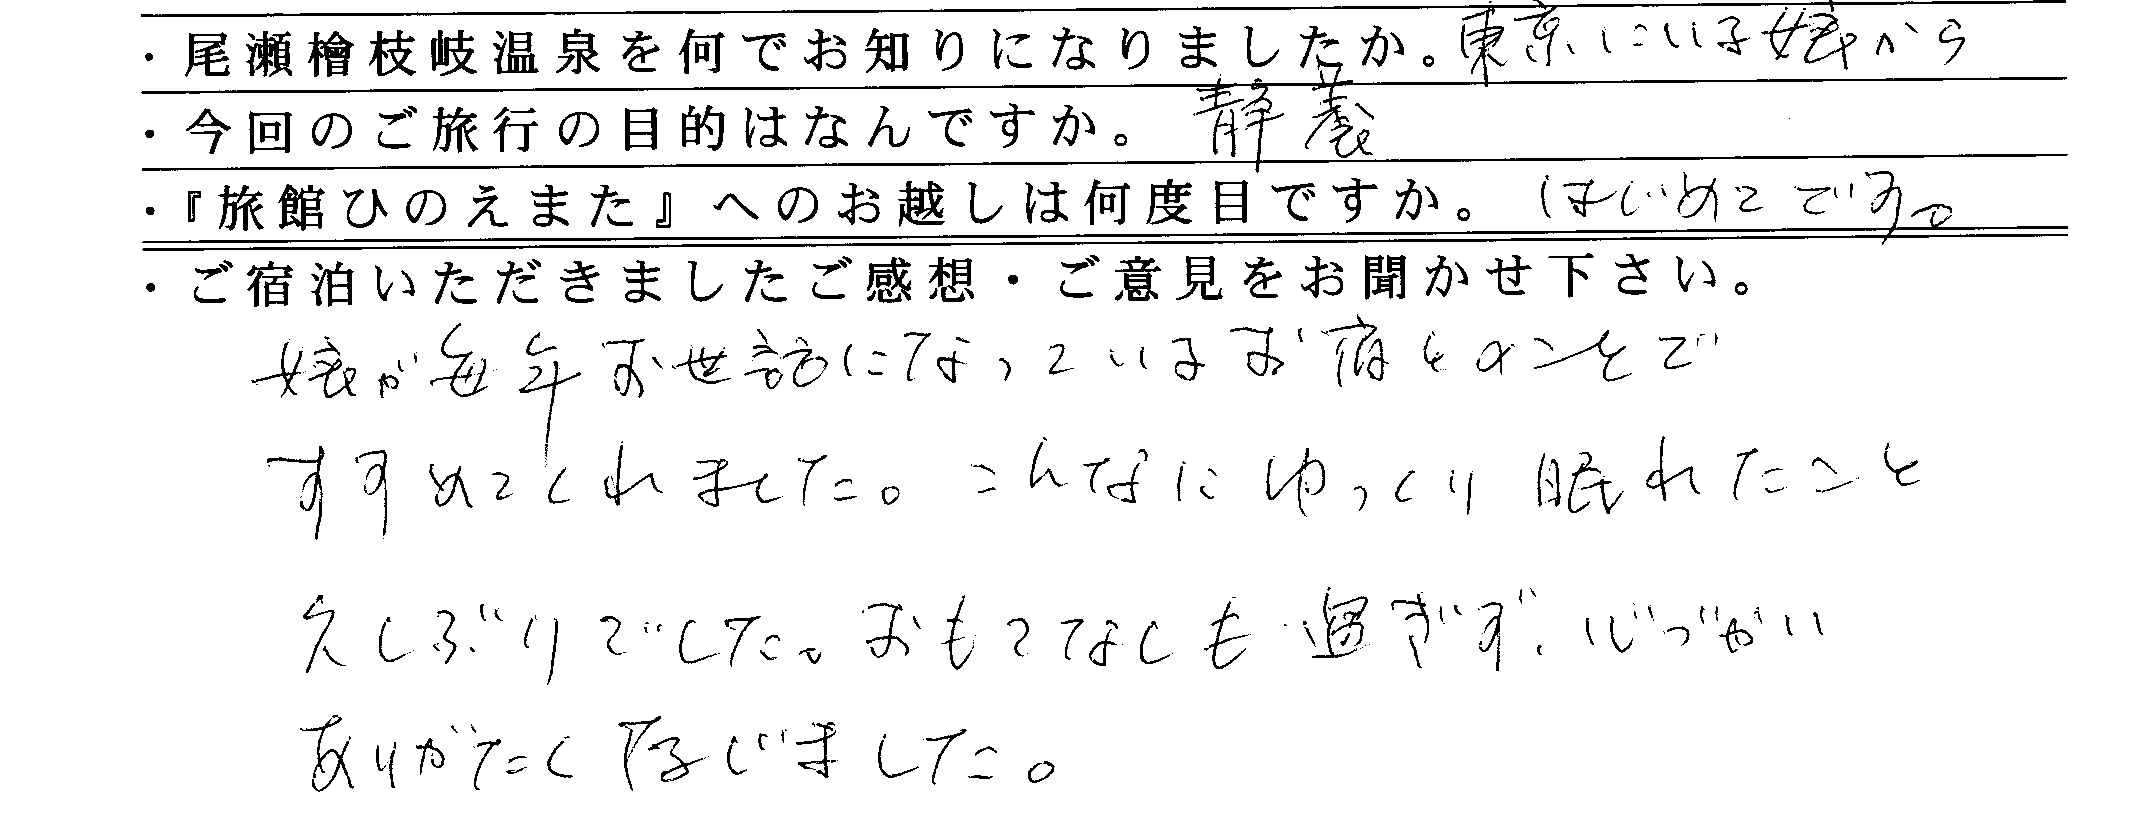 ・尾瀬檜枝岐温泉を何でお知りになりましたか。東京にいる娘から
・今回のご旅行の目的はなんですか。 静養
・『旅館ひのえまた』へのお越しは何度目ですか。 はじめてです。
・ご宿泊いただきましたご感想・ご意見をお聞かせ下さい。
娘が毎年お世話になっているお宿とのことで
すすめてくれました。こんなにゆっくり眠れたこと
久しぶりでした。おもてなしも過ぎず、心づかい
ありがたく存じました。